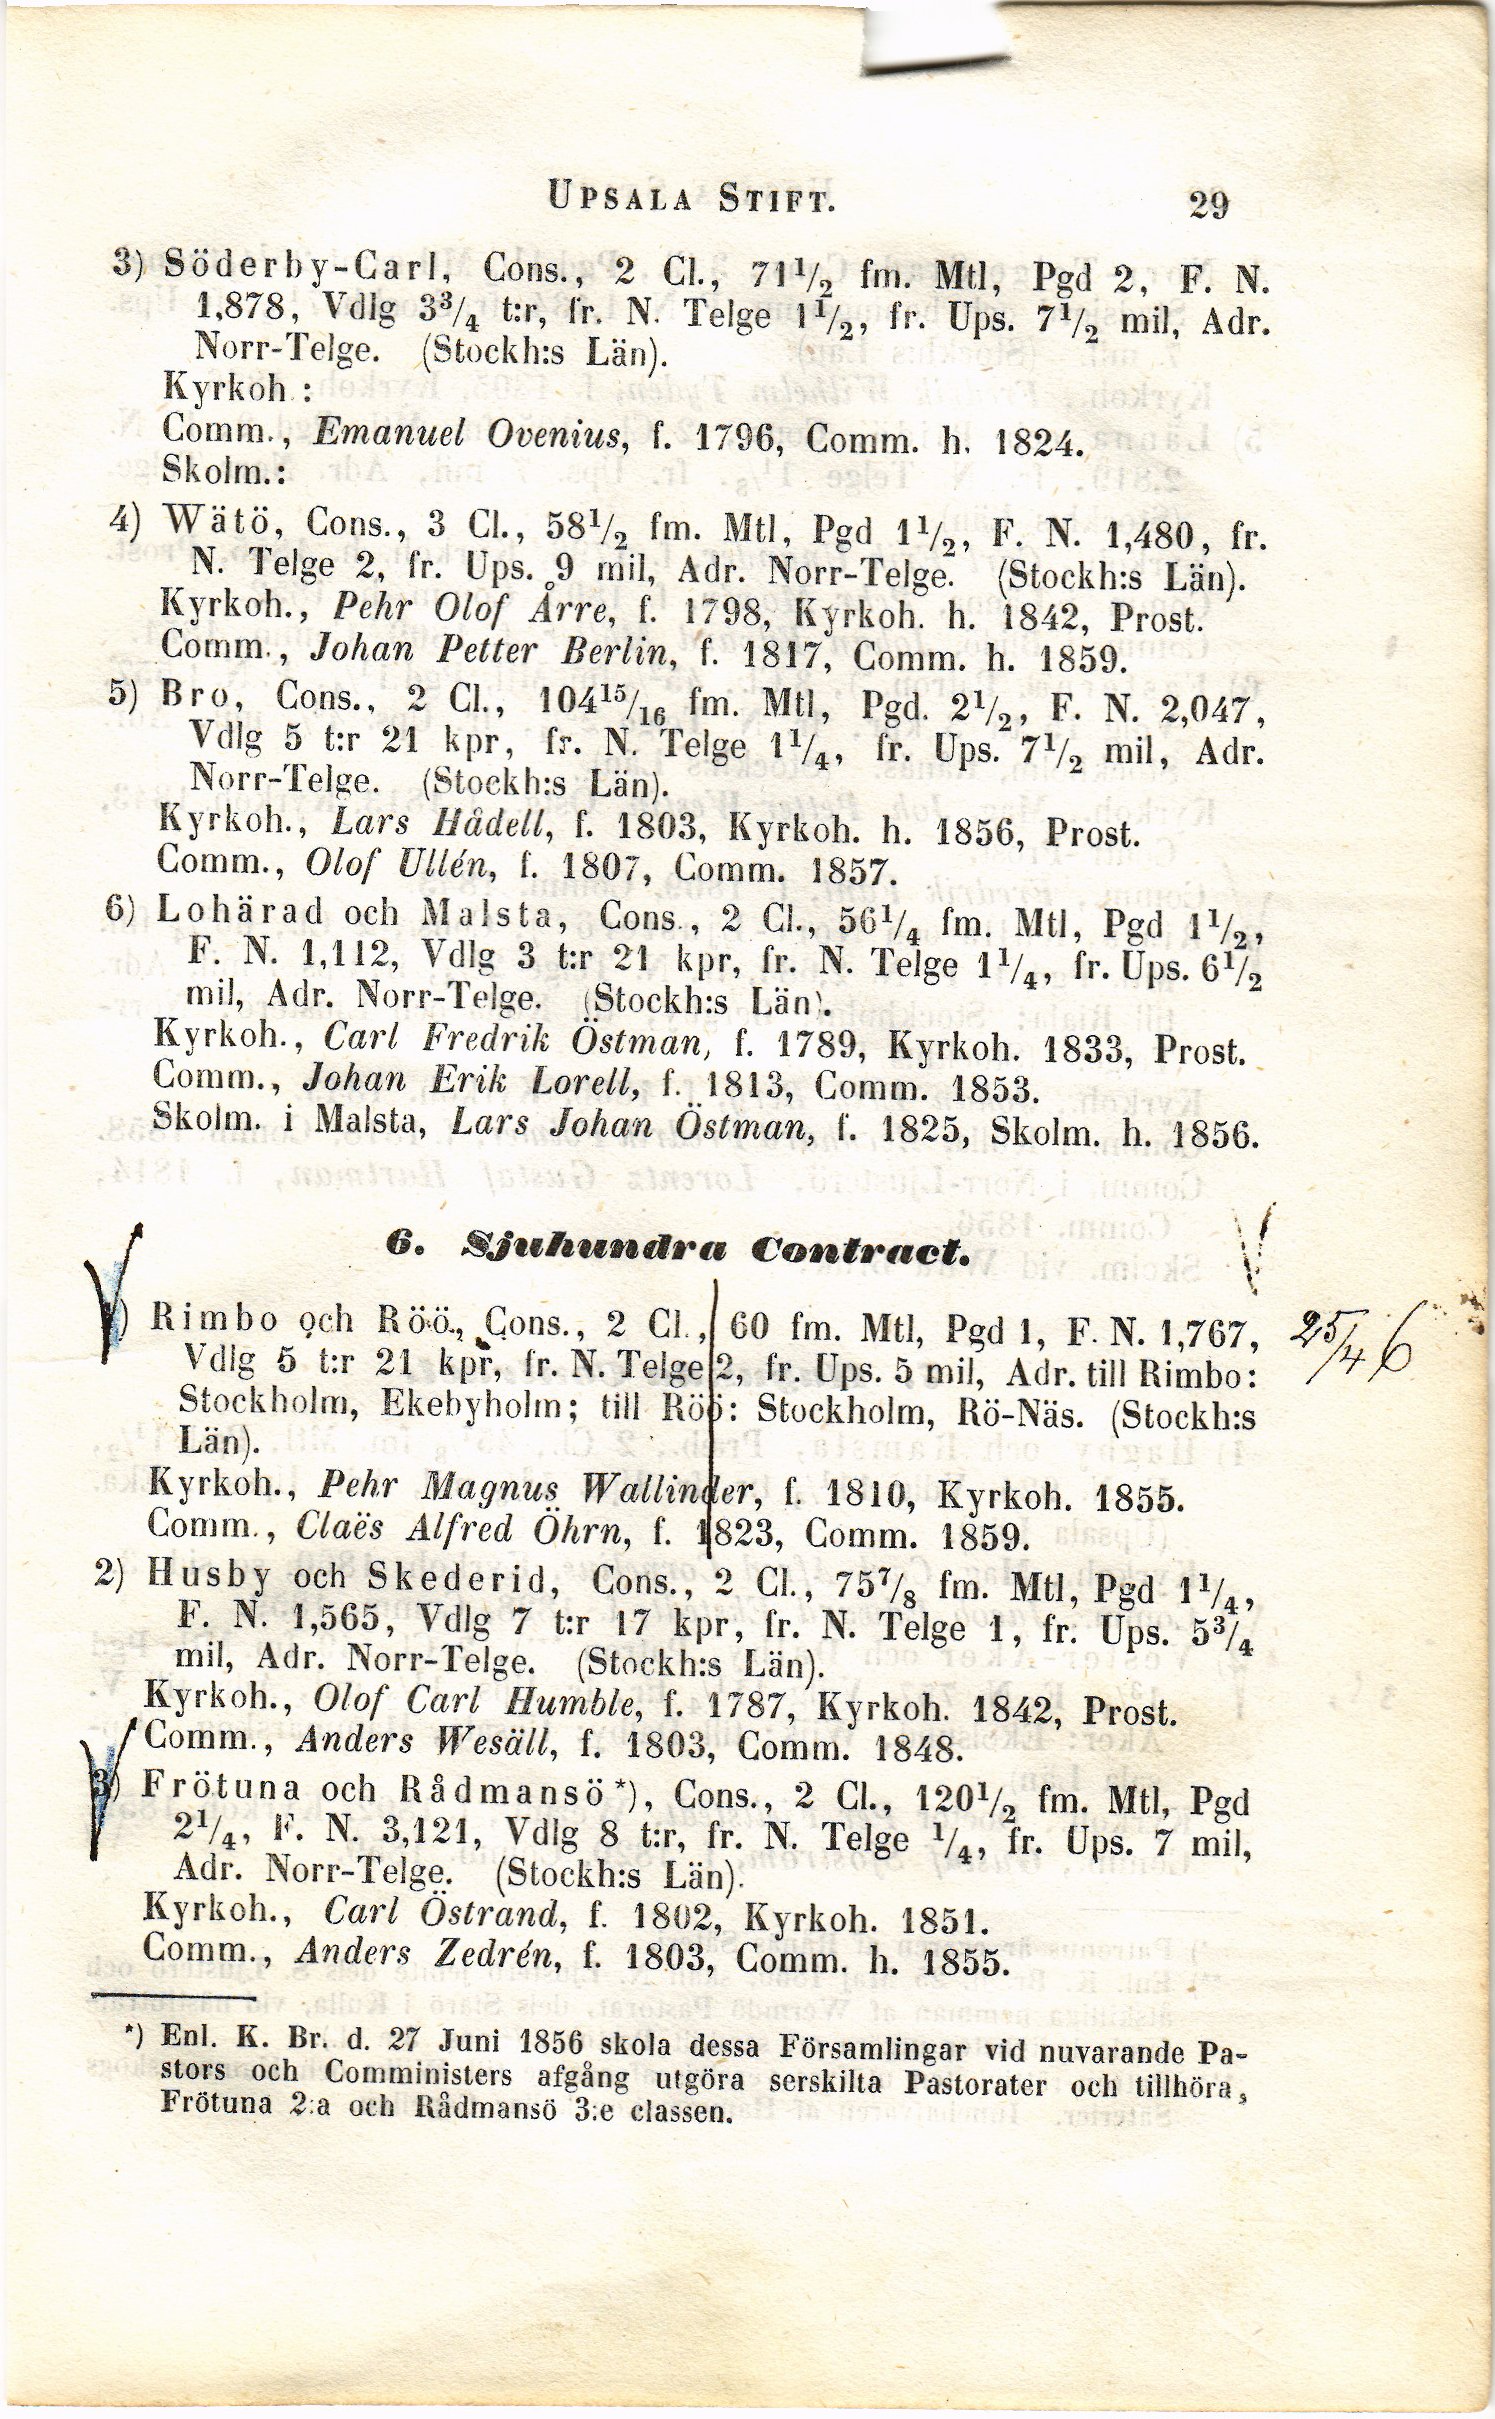 UPSALA STIFT. 29
3) Söderby-Carl, Cons., 2 Cl., 71 1/2 fm. Mtl, Pgd 2, F. N.
1,878, Vdlg 3 3/4 t:r, fr. N. Telge 1 1/2, fr. Ups. 7 1/2 mil, Adr.
Norr-Telge. (Stockh:s Län).
Kyrkoh.:
Comm., Emanuel Ovenius, f. 1796, Comm. h. 1824.
Skolm.:
4) Wätö, Cons., 3 Cl., 58 1/2 fm. Mtl, Pgd 1 1/2, F. N. 1,480, fr.
N. Telge 2, fr. Ups. 9 mil, Adr. Norr-Telge. (Stockh:s Län).
Kyrkoh., Pehr Olof Årre, f. 1798, Kyrkoh. h. 1842, Prost.
Comm., Johan Petter Berlin, f. 1817, Comm. h. 1859.
5) Bro, Cons., 2 Cl., 104 15/16 fm. Mtl, Pgd. 2 1/2, F. N. 2,047,
Vdlg 5 t:r 21 kpr, fr. N. Telge 1 1/4, fr. Ups. 7 1/2 mil, Adr.
Norr-Telge. (Stockh:s Län).
Kyrkoh., Lars Hådell, f. 1803, Kyrkoh. h. 1856, Prost.
Comm., Olof Ullén, f. 1807, Comm. 1857.
6) Lohärad och Malsta, Cons., 2 Cl., 56 1/4 fm. Mtl, Pgd 1 1/2,
F. N. 1,112, Vdlg 3 t:r 21 kpr, fr. N. Telge 1 1/4, fr. Ups. 6 1/2
mil, Adr. Norr-Telge. (Stockh:s Län).
Kyrkoh., Carl Fredrik Östman, f. 1789, Kyrkoh. 1833, Prost.
Comm., Johan Erik Lorell, f. 1813, Comm. 1853.
Skolm. i Malsta, Lars Johan Östman, f. 1825, Skolm. h. 1856.
6. Sjuhundra Contract.
1) Rimbo och Röö, Cons., 2 Cl., 60 fm. Mtl, Pgd 1, F. N. 1,767, 25/4 6
Vdlg 5 t:r 21 kpr, fr. N. Telge 2, fr. Ups. 5 mil, Adr. till Rimbo:
Stockholm, Ekebyholm; till Röö: Stockholm, Rö-Näs. (Stockh:s
Län).
Kyrkoh., Pehr Magnus Wallinder, f. 1810, Kyrkoh. 1855.
Comm., Claës Alfred Öhrn, f. 1823, Comm. 1859.
2) Husby och Skederid, Cons., 2 Cl., 75 7/8 fm. Mtl, Pgd 1 1/4,
F. N. 1,565, Vdlg 7 t:r 17 kpr, fr. N. Telge 1, fr. Ups. 5 3/4
mil, Adr. Norr-Telge. (Stockh:s Län).
Kyrkoh., Olof Carl Humble, f. 1787, Kyrkoh. 1842, Prost.
Comm., Anders Wesäll, f. 1803, Comm. 1848.
3) Frötuna och Rådmansö*), Cons., 2 Cl., 120 1/2 fm. Mtl, Pgd
2 1/4, F. N. 3,121, Vdlg 8 t:r, fr. N. Telge 1/4, fr. Ups. 7 mil,
Adr. Norr-Telge. (Stockh:s Län).
Kyrkoh., Carl Östrand, f. 1802, Kyrkoh. 1851.
Comm., Anders Zedrén, f. 1803, Comm. h. 1855.
*) Enl. K. Br. d. 27 Juni 1856 skola dessa Församlingar vid nuvarande Pa-
stors och Comministers afgång utgöra serskilta Pastorater och tillhöra,
Frötuna 2:a och Rådmansö 3:e classen.